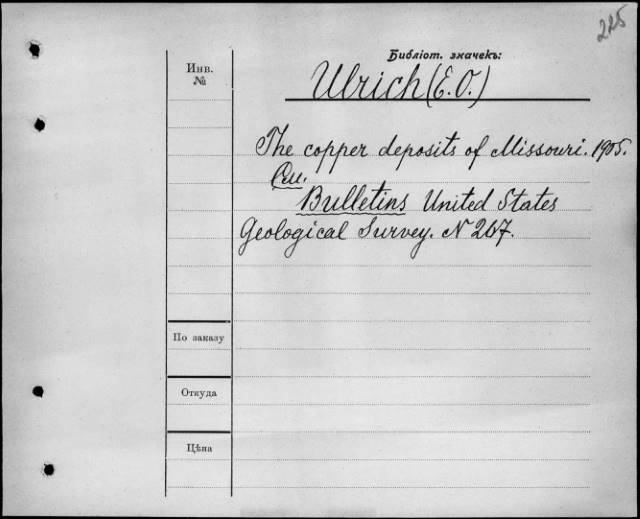 225
Библіот. значекъ:
Инв.
№
Ulrich (E. O.)
The copper deposits of Missouri. 1905.
Cu.
Bulletins United States
Geological Survey. N 267.
По заказу
Откуда
Цѣна